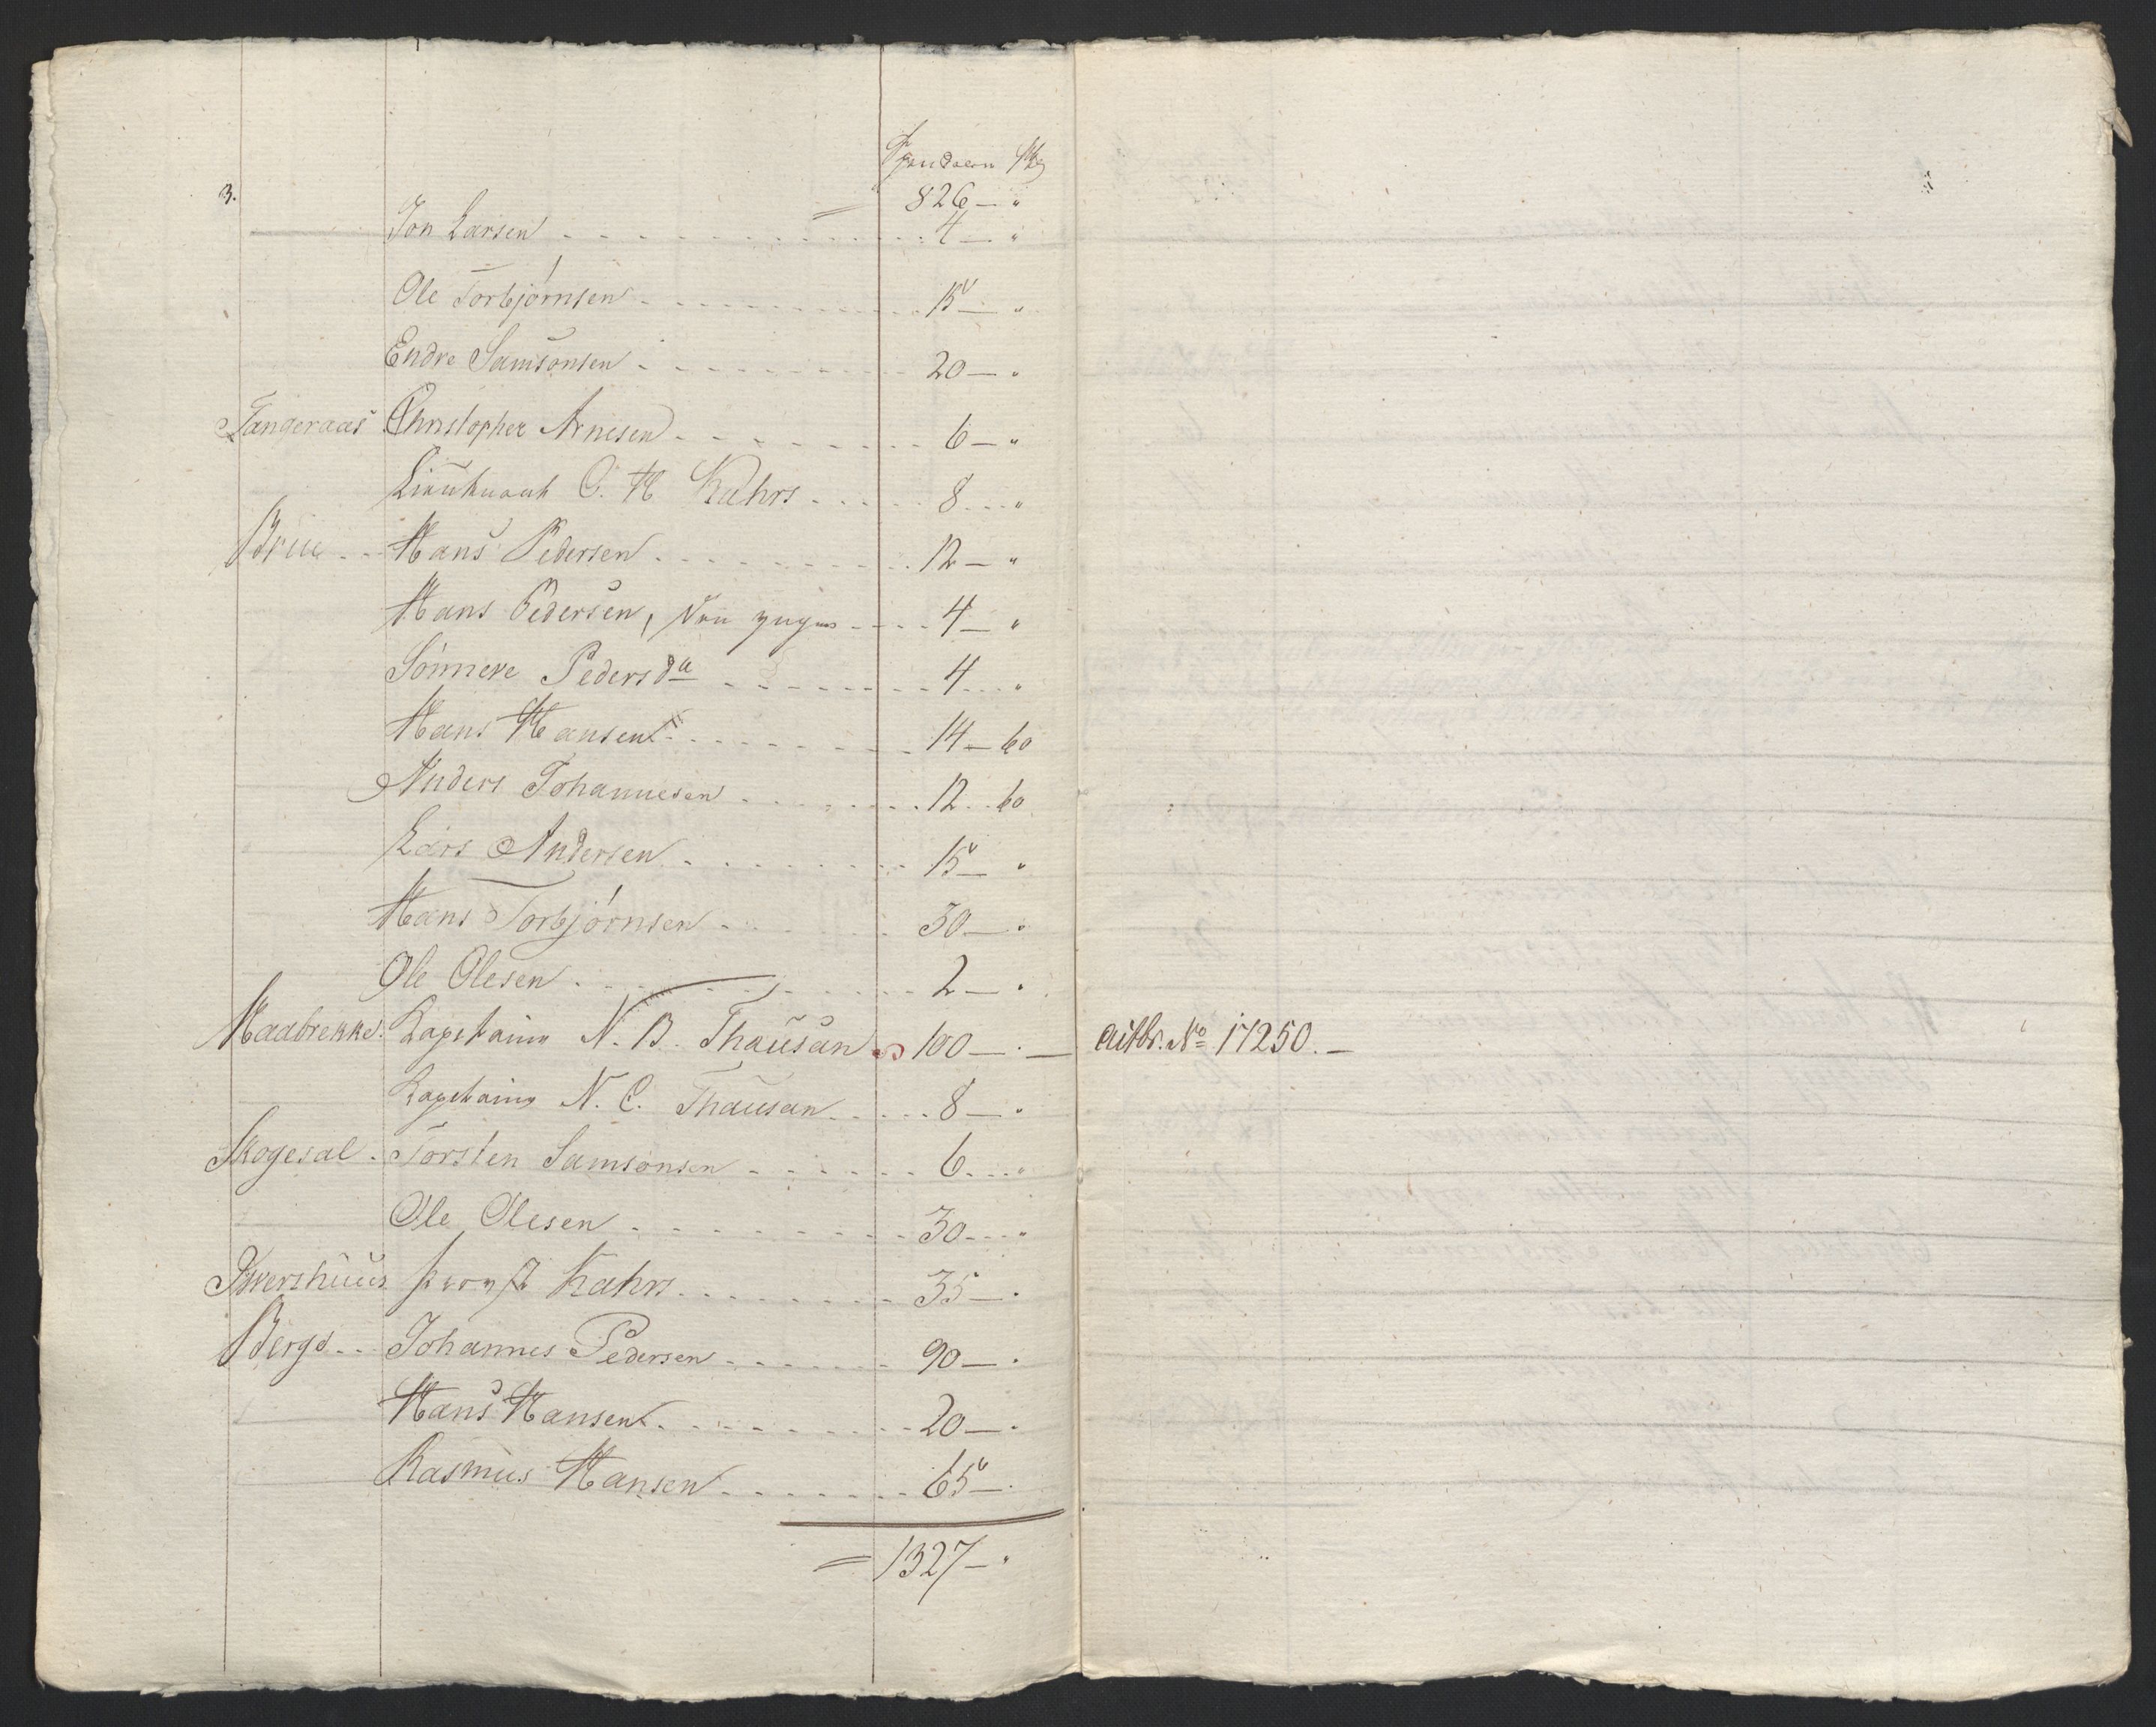 Spesdaler Sk
3.
= 826 — "
Jon Larsen - - - - 4 — "
Ole Torbjørnsen - - - - 15 — "
Endre Samsonsen - - - - 20 — "
Tangeraas Christopher Arnesen - - - - 6 — "
Lieutnant C. H. Kahrs - - - - 8 - - "
Brue - - Hans Pedersen - - - - 12 — "
Hans Pedersen, den yngre - - - - 4 — "
Sønneve Pedersda - - - - 4 - - "
Hans Hansen - - - - 14 — 60
Anders Johannesen - - - - 12 - - 60
Lars Andersen - - - - 15 — "
Hans Torbjørnsen - - - - 30 — "
Ole Olesen - - - - 2 — "
Haabrekke. Kapitaine N. B. Thausan 100 — . — Aitbr. No 17250. —
Kapitaine N. C. Thausan - - - - 8 — "
Skogesal. Torsten Samsonsen - - - - 6 - - "
Ole Olesen - - - - 30 - - "
Iwershuus Kahrs - - - - 35 — .
Berge - - Johannes Pedersen - - - - 90 — .
Hans Hansen - - - - 20 — .
Rasmus Hansen - - - - 65 — .
= 1327 — "